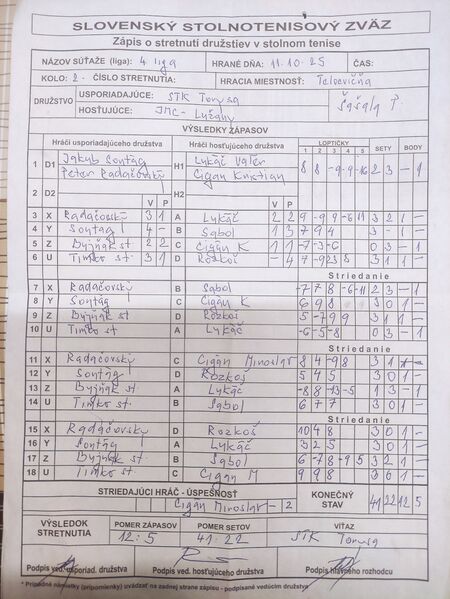 SLOVENSKÝ STOLNOTENISOVÝ ZVÄZ
Zápis o stretnutí družstiev v stolnom tenise
NÁZOV SÚŤAŽE (liga): 4. liga HRANÉ DŇA: 11.10.25 ČAS:
KOLO: 2. ČÍSLO STRETNUTIA: HRACIA MIESTNOSŤ:
DRUŽSTVO
USPORIADAJÚCE: STK Torysa
HOSŤUJÚCE: JMC-
VÝSLEDKY ZÁPASOV
Hráči usporiadajúceho družstva Hráči hosťujúceho družstva LOPTIČKY SETY BODY
1 2 3 4 5
1 D1 Jakub Sontág H1 Lukáč 8 8 -9 -9 -16 2 3 - 1
Peter Radačovský Cigán Kristian
2 D2 H2
V P V P
3 X Radačovský 3 1 A Lukáč 2 2 9 -9 9 -6 11 3 2 1 -
4 Y Sontág 4 - B Sabol 1 3 7 9 4 3 - 1 -
5 Z Byjňák st 2 2 C Cigán K 1 3 -7 -3 -6 0 3 - 1
6 U Timko st. 3 1 D Rozkoš - 4 3 1 1 -
Striedanie
7 X Radačovský B Sabol -7 7 8 -6 -11 2 3 - 1
8 Y Sontág C Cigán K 6 9 8 3 0 1 -
9 Z Byjňák st D Rozkoš 5 -7 9 9 3 1 1 -
10 U Timko st A Lukáč -6 -5 -8 0 3 - 1
Striedanie
11 X Radačovský C Cigán Miroslav 8 4 -9 8 3 1 1 -
12 Y Sontág D Rozkoš 5 4 5 3 0 1 -
13 Z Byjňák st. A Lukáč -8 8 -13 -5 1 3 - 1
14 U Timko st. B Sabol 6 7 7 3 0 1 -
Striedanie
15 X Radačovský D Rozkoš 10 4 8 3 0 1 -
16 Y Sontág A Lukáč 3 2 5 3 0 1 -
17 Z Byjňák st B Sabol 6 -7 8 -9 5 3 2 1 -
18 U Timko st. C Cigán M 9 9 8 3 0 1 -
STRIEDAJÚCI HRÁČ - ÚSPEŠNOSŤ KONEČNÝ STAV 41 22 12 5
Cigán Miroslav - 2
VÝSLEDOK STRETNUTIA POMER ZÁPASOV POMER SETOV VÍŤAZ
12:5 41:22 STK Torysa
Podpis ved. usporiad. družstva Podpis ved. hosťujúceho družstva Podpis hlavného rozhodcu
* Prípadné námietky (pripomienky) uvádzať na zadnej strane zápisu - podpísané vedúcim družstva